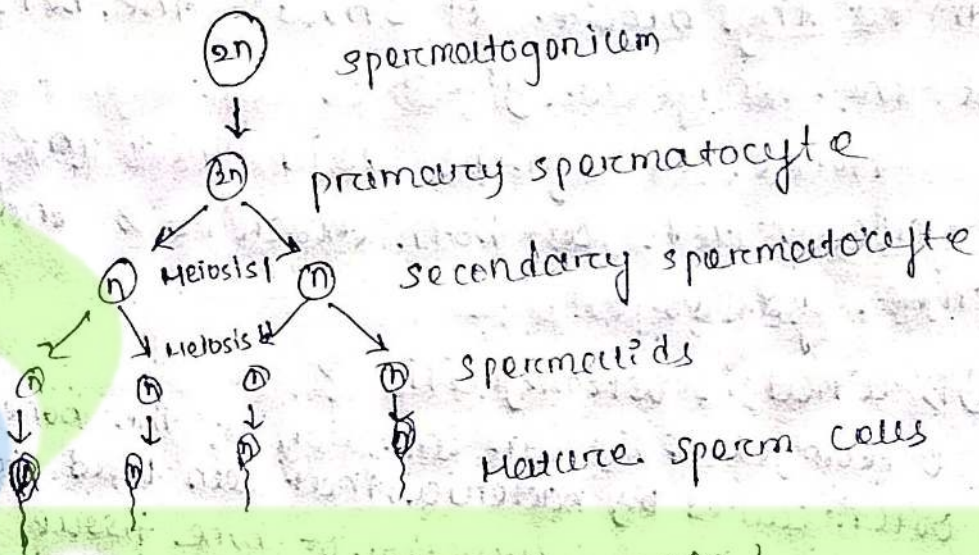 2n spermatogonium
2n primary spermatocyte
n Meiosis I n secondary spermatocyte
Meiosis II
n n n n spermatids
n n n n Mature sperm cells